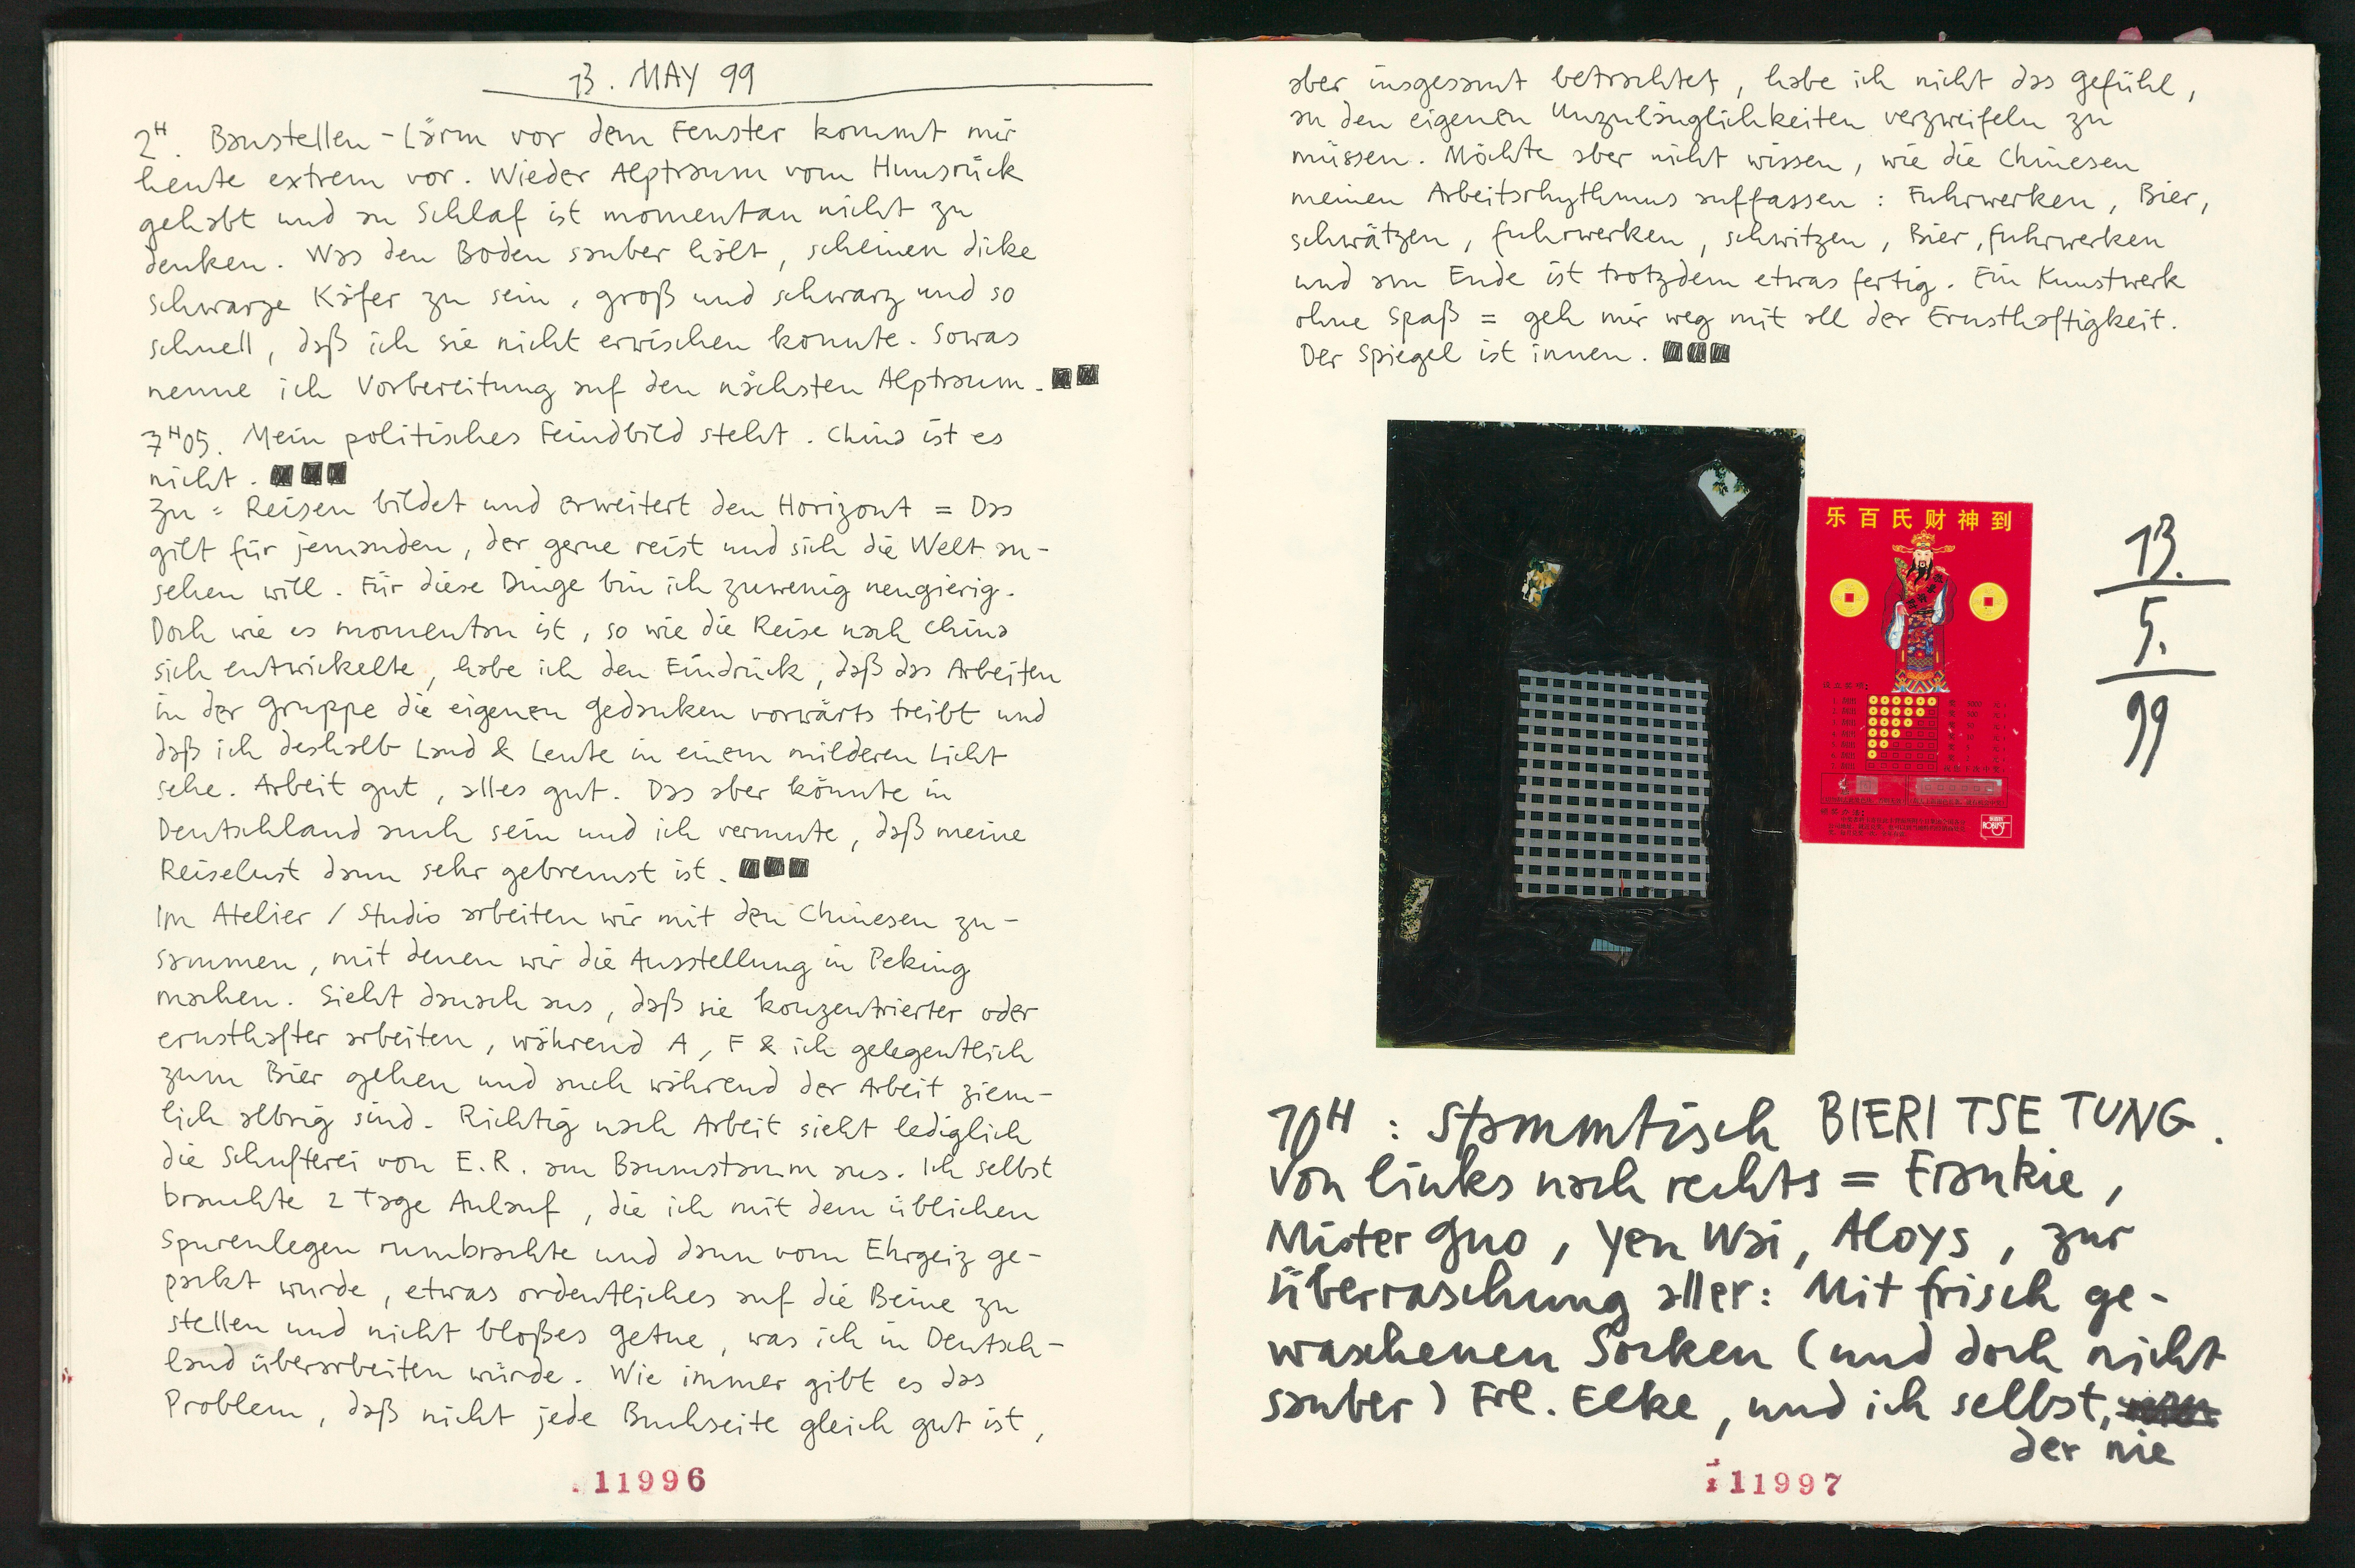 13. MAY 99
2H. Baustellen-Lärm vor dem Fenster kommt mir
heute extrem vor. Wieder Alptraum vom Hunsrück
gehabt und an Schlaf ist momentan nicht zu
denken. Was den Boden sauber hält, scheinen dicke
schwarze Käfer zu sein, groß und schwarz und so
schnell, daß ich sie nicht erwischen konnte. Sowas
nenne ich Vorbereitung auf den nächsten Alptraum.
7H05. Mein politisches Feindbild steht. China ist es
nicht.
Zu = Reisen bildet und erweitert den Horizont = Das
gilt für jemanden, der gerne reist und sich die Welt an-
sehen will. Für diese Dinge bin ich zuwenig neugierig.
Doch wie es momentan ist, so wie die Reise nach China
sich entwickelte, habe ich den Eindruck, daß das Arbeiten
in der Gruppe die eigenen Gedanken vorwärts treibt und
daß ich deshalb Land & Leute in einem milderen Licht
sehe. Arbeit gut, alles gut. Das aber könnte in
Deutschland auch sein und ich vermute, daß meine
Reiselust dann sehr gebremst ist.
Im Atelier / Studio arbeiten wir mit den Chinesen zu-
sammen, mit denen wir die Ausstellung in Peking
machen. Sieht danach aus, daß sie konzentrierter oder
ernsthafter arbeiten, während A, F & ich gelegentlich
zum Bier gehen und auch während der Arbeit ziem-
lich albrig sind. Richtig nach Arbeit sieht lediglich
die Schufterei von E.R. am Baumstamm aus. Ich selbst
brauchte 2 Tage Anlauf, die ich mit dem üblichen
Spurenlegen rumbrachte und dann vom Ehrgeiz ge-
packt wurde, etwas ordentliches auf die Beine zu
stellen und nicht bloßes Getue, was ich in Deutsch-
land überarbeiten würde. Wie immer gibt es das
Problem, daß nicht jede Buchseite gleich gut ist,
11996
aber insgesamt betrachtet, habe ich nicht das Gefühl,
an den eigenen Unzulänglichkeiten verzweifeln zu
müssen. Möchte aber nicht wissen, wie die Chinesen
meinen Arbeitsrhythmus auffassen: Fuhrwerken, Bier,
schwätzen, fuhrwerken, schwitzen, Bier, fuhrwerken
und am Ende ist trotzdem etwas fertig. Ein Kunstwerk
ohne Spaß = geh mir weg mit all der Ernsthaftigkeit.
Der Spiegel ist innen.
乐百氏财神到
13.
5.
99
10H: Stammtisch BIERI TSE TUNG.
Von links nach rechts = Frankie,
Mister Guo, Yen Wai, Aloys, zur
Überraschung aller: Mit frisch ge-
waschenen Socken (und doch nicht
sauber) Frl. Elke, und ich selbst,
der nie
11997